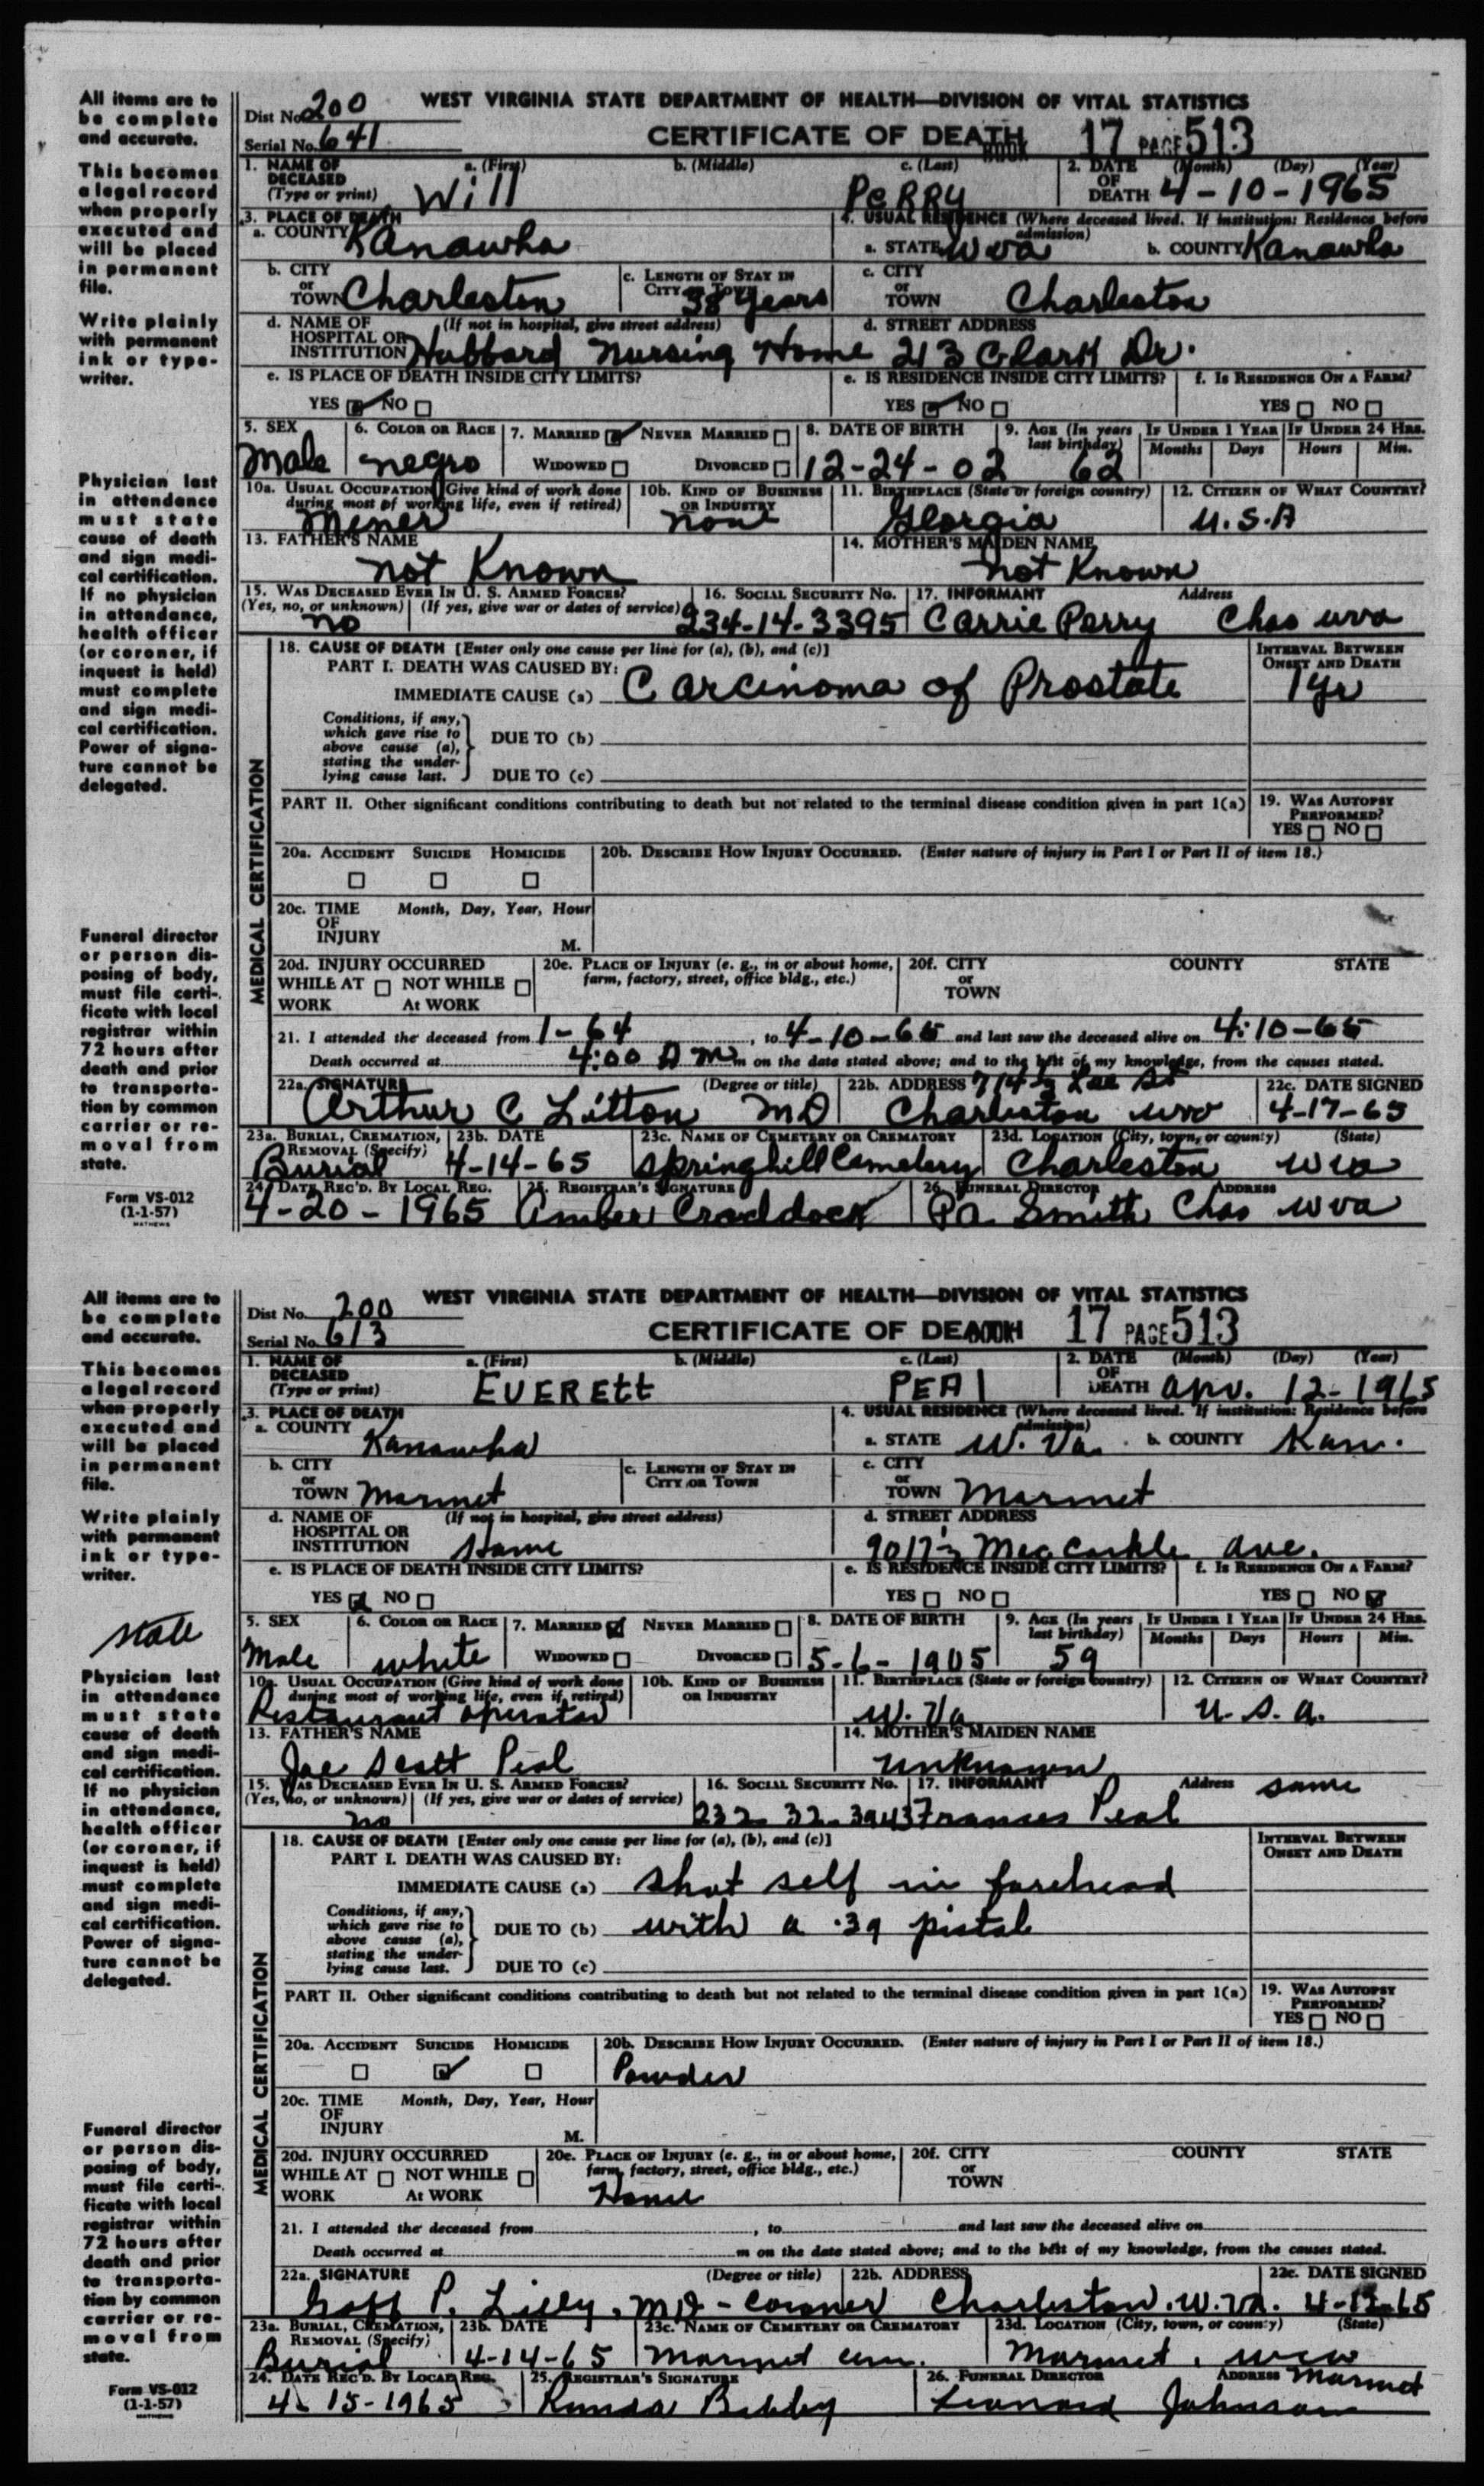 All items are to
be complete
and accurate.
This becomes
a legal record
when properly
executed and
will be placed
in permanent
file.
Write plainly
with permanent
ink or type-
writer.
Physician last
in attendance
must state
cause of death
and sign medi-
cal certification.
If no physician
in attendance,
health officer
(or coroner, if
inquest is held)
must complete
and sign medi-
cal certification.
Power of signa-
ture cannot be
delegated.
Funeral director
or person dis-
posing of body,
must file certi-
ficate with local
registrar within
72 hours after
death and prior
to transporta-
tion by common
carrier or re-
moval from
state.
Form VS-012
(1-1-57)
MATHEWS
WEST VIRGINIA STATE DEPARTMENT OF HEALTH—DIVISION OF VITAL STATISTICS
Dist No. 200
Serial No. 641
CERTIFICATE OF DEATH BOOK 17 PAGE 513
1. NAME OF DECEASED (Type or print) a. (First) b. (Middle) c. (Last) 2. DATE OF DEATH (Month) (Day) (Year)
Will PeRRy 4-10-1965
3. PLACE OF DEATH 4. USUAL RESIDENCE (Where deceased lived. If institution: Residence before admission)
a. COUNTY Kanawha a. STATE Wva b. COUNTY Kanawha
b. CITY or TOWN Charleston c. LENGTH OF STAY IN CITY or TOWN 38 years c. CITY or TOWN Charleston
d. NAME OF HOSPITAL OR INSTITUTION (If not in hospital, give street address) Hubbard Nursing Home d. STREET ADDRESS 213 Clark Dr.
e. IS PLACE OF DEATH INSIDE CITY LIMITS? e. IS RESIDENCE INSIDE CITY LIMITS? f. IS RESIDENCE ON A FARM?
YES NO YES NO YES NO
5. SEX 6. COLOR OR RACE 7. MARRIED NEVER MARRIED 8. DATE OF BIRTH 9. AGE (In years last birthday) IF UNDER 1 YEAR IF UNDER 24 HRS.
Male negro WIDOWED DIVORCED 12-24-02 62 Months Days Hours Min.
10a. USUAL OCCUPATION (Give kind of work done during most of working life, even if retired) 10b. KIND OF BUSINESS OR INDUSTRY 11. BIRTHPLACE (State or foreign country) 12. CITIZEN OF WHAT COUNTRY?
Miner none Georgia U.S.A
13. FATHER'S NAME 14. MOTHER'S MAIDEN NAME
not Known not Known
15. WAS DECEASED EVER IN U. S. ARMED FORCES? 16. SOCIAL SECURITY NO. 17. INFORMANT Address
(Yes, no, or unknown) (If yes, give war or dates of service)
no 234-14-3395 Carrie Perry Chas wva
18. CAUSE OF DEATH [Enter only one cause per line for (a), (b), and (c)] INTERVAL BETWEEN ONSET AND DEATH
PART I. DEATH WAS CAUSED BY:
IMMEDIATE CAUSE (a) Carcinoma of Prostate 1 yr
Conditions, if any, which gave rise to above cause (a), stating the under- lying cause last.
DUE TO (b)
DUE TO (c)
MEDICAL CERTIFICATION
PART II. Other significant conditions contributing to death but not related to the terminal disease condition given in part 1(a) 19. WAS AUTOPSY PERFORMED?
YES NO
20a. ACCIDENT SUICIDE HOMICIDE 20b. DESCRIBE HOW INJURY OCCURRED. (Enter nature of injury in Part I or Part II of item 18.)
20c. TIME OF INJURY Month, Day, Year, Hour M.
20d. INJURY OCCURRED 20e. PLACE OF INJURY (e. g., in or about home, farm, factory, street, office bldg., etc.) 20f. CITY or TOWN COUNTY STATE
WHILE AT WORK NOT WHILE At WORK
21. I attended the deceased from 1-64, to 4-10-65 and last saw the deceased alive on 4-10-65
Death occurred at 4:00 A m m on the date stated above; and to the best of my knowledge, from the causes stated.
22a. SIGNATURE (Degree or title) 22b. ADDRESS 22c. DATE SIGNED
Arthur C Litton MD 714½ Lee St Charleston wva 4-17-65
23a. BURIAL, CREMATION, REMOVAL (Specify) 23b. DATE 23c. NAME OF CEMETERY OR CREMATORY 23d. LOCATION (City, town, or county) (State)
Burial 4-14-65 Springhill Cemetery Charleston wva
24. DATE REC'D. BY LOCAL REG. 25. REGISTRAR'S SIGNATURE 26. FUNERAL DIRECTOR ADDRESS
4-20-1965 Amber Craddock Pa Smith Chas wva
All items are to
be complete
and accurate.
This becomes
a legal record
when properly
executed and
will be placed
in permanent
file.
Write plainly
with permanent
ink or type-
writer.
state
Physician last
in attendance
must state
cause of death
and sign medi-
cal certification.
If no physician
in attendance,
health officer
(or coroner, if
inquest is held)
must complete
and sign medi-
cal certification.
Power of signa-
ture cannot be
delegated.
Funeral director
or person dis-
posing of body,
must file certi-
ficate with local
registrar within
72 hours after
death and prior
to transporta-
tion by common
carrier or re-
moval from
state.
Form VS-012
(1-1-57)
MATHEWS
WEST VIRGINIA STATE DEPARTMENT OF HEALTH—DIVISION OF VITAL STATISTICS
Dist No. 200
Serial No. 613
CERTIFICATE OF DEATH BOOK 17 PAGE 513
1. NAME OF DECEASED (Type or print) a. (First) b. (Middle) c. (Last) 2. DATE OF DEATH (Month) (Day) (Year)
EVEREtt PEAl apr. 12-1965
3. PLACE OF DEATH 4. USUAL RESIDENCE (Where deceased lived. If institution: Residence before admission)
a. COUNTY Kanawha a. STATE W. Va. b. COUNTY Kan.
b. CITY or TOWN Marmet c. LENGTH OF STAY IN CITY or TOWN c. CITY or TOWN Marmet
d. NAME OF HOSPITAL OR INSTITUTION (If not in hospital, give street address) Same d. STREET ADDRESS 9017½ MacCorkle ave.
e. IS PLACE OF DEATH INSIDE CITY LIMITS? e. IS RESIDENCE INSIDE CITY LIMITS? f. IS RESIDENCE ON A FARM?
YES NO YES NO YES NO
5. SEX 6. COLOR OR RACE 7. MARRIED NEVER MARRIED 8. DATE OF BIRTH 9. AGE (In years last birthday) IF UNDER 1 YEAR IF UNDER 24 HRS.
Male white WIDOWED DIVORCED 5-6-1905 59 Months Days Hours Min.
10a. USUAL OCCUPATION (Give kind of work done during most of working life, even if retired) 10b. KIND OF BUSINESS OR INDUSTRY 11. BIRTHPLACE (State or foreign country) 12. CITIZEN OF WHAT COUNTRY?
Restaurant operator W. Va U. S. a.
13. FATHER'S NAME 14. MOTHER'S MAIDEN NAME
Joe Scott Peal unknown
15. WAS DECEASED EVER IN U. S. ARMED FORCES? 16. SOCIAL SECURITY NO. 17. INFORMANT Address same
(Yes, no, or unknown) (If yes, give war or dates of service)
no 232-32-3943 Frances Peal
18. CAUSE OF DEATH [Enter only one cause per line for (a), (b), and (c)] INTERVAL BETWEEN ONSET AND DEATH
PART I. DEATH WAS CAUSED BY:
IMMEDIATE CAUSE (a) shot self in forehead
Conditions, if any, which gave rise to above cause (a), stating the under- lying cause last.
DUE TO (b) with a .39 pistol
DUE TO (c)
MEDICAL CERTIFICATION
PART II. Other significant conditions contributing to death but not related to the terminal disease condition given in part 1(a) 19. WAS AUTOPSY PERFORMED?
YES NO
20a. ACCIDENT SUICIDE HOMICIDE 20b. DESCRIBE HOW INJURY OCCURRED. (Enter nature of injury in Part I or Part II of item 18.)
Powder
20c. TIME OF INJURY Month, Day, Year, Hour M.
20d. INJURY OCCURRED 20e. PLACE OF INJURY (e. g., in or about home, farm, factory, street, office bldg., etc.) 20f. CITY or TOWN COUNTY STATE
WHILE AT WORK NOT WHILE At WORK Home
21. I attended the deceased from , to and last saw the deceased alive on
Death occurred at m on the date stated above; and to the best of my knowledge, from the causes stated.
22a. SIGNATURE (Degree or title) 22b. ADDRESS 22c. DATE SIGNED
Goff P. Lilly, MD - Coroner Charleston. W. Va. 4-12-65
23a. BURIAL, CREMATION, REMOVAL (Specify) 23b. DATE 23c. NAME OF CEMETERY OR CREMATORY 23d. LOCATION (City, town, or county) (State)
Burial 4-14-65 Marmet cem. Marmet, wva
24. DATE REC'D. BY LOCAL REG. 25. REGISTRAR'S SIGNATURE 26. FUNERAL DIRECTOR ADDRESS Marmet
4-15-1965 Leonard Johnson